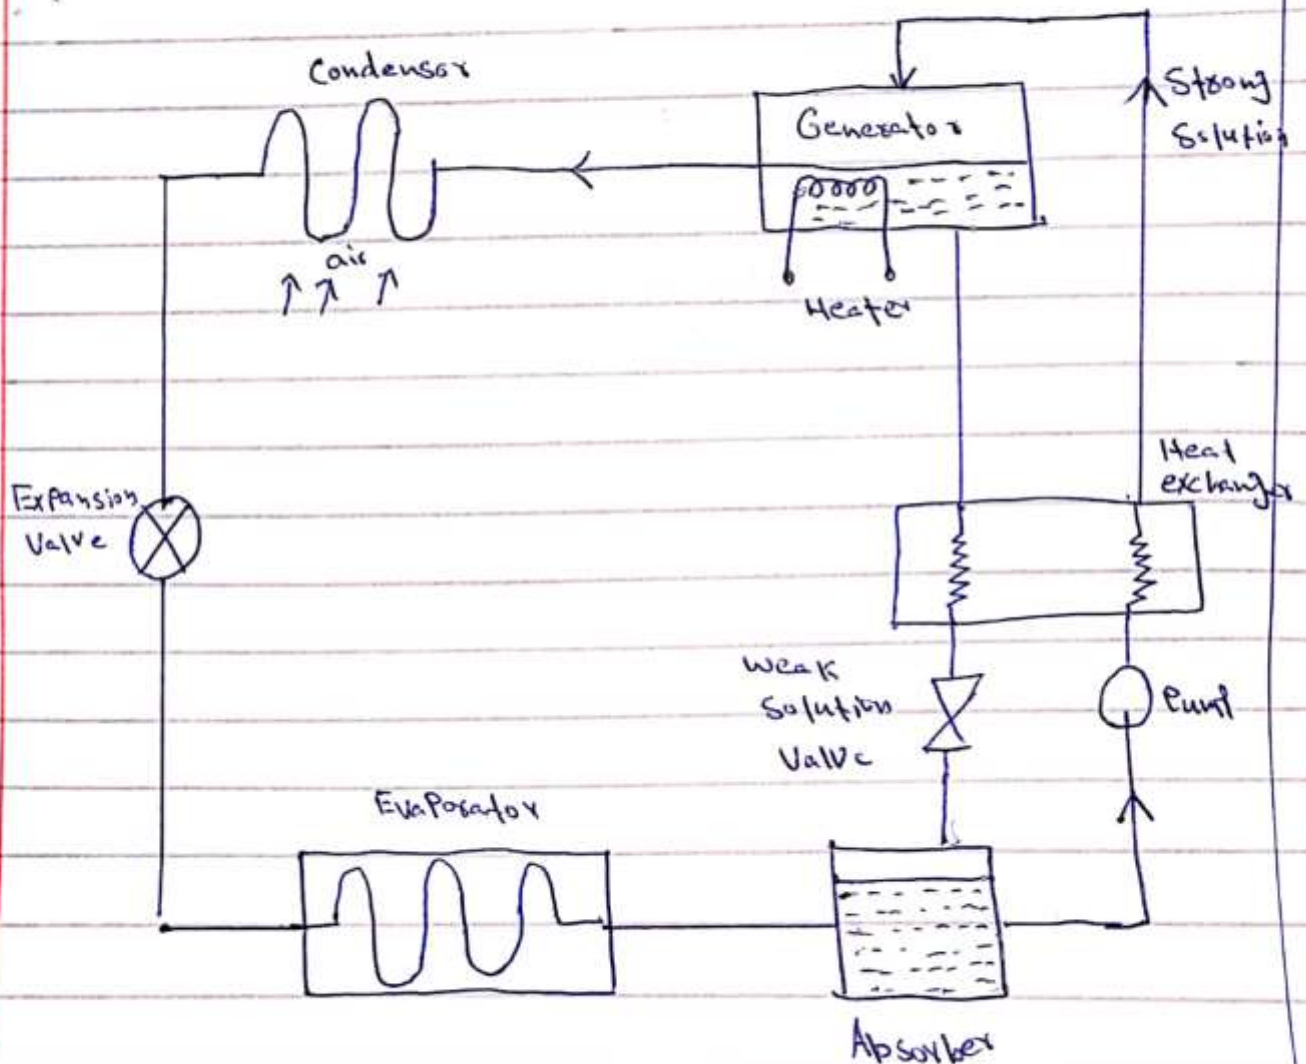 Condensor
Generator
Strong
Solution
air
Heater
Heat
exchanger
Expansion
Valve
Weak
Solution
Valve
Pump
Evaporator
Absorber